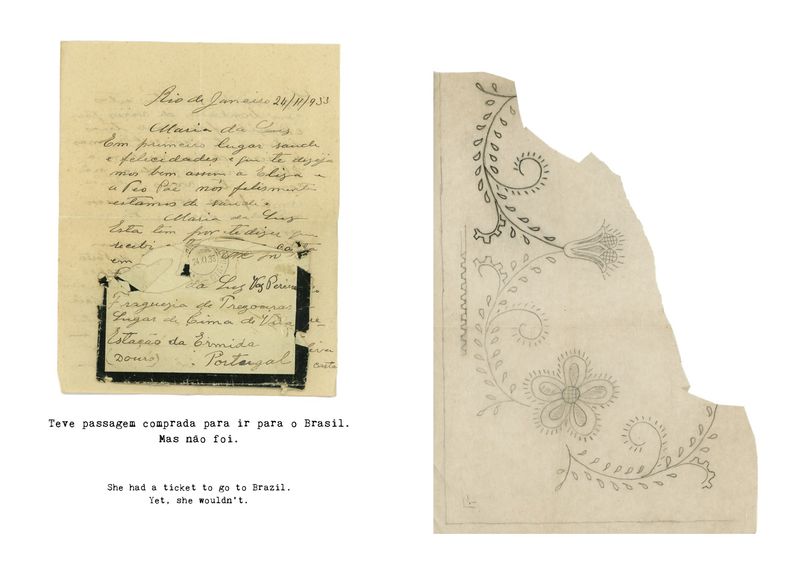 Rio de Janeiro 24/11/933
Maria da Luz
Em primeiro lugar saude
e felicidades e que te deseja
mos bem assim a Eliza e
a teo Pae nós felismente
estamos de saude.
Maria da Luz
Esta tem por te dizer que
recebi
em
da Luz Vaz Pereira
Fraguezia de Trezouras
Lugar de Cima de Villa
Estação da Ermida
(Douro) Portugal
Teve passagem comprada para ir para o Brasil.
Mas não foi.
She had a ticket to go to Brazil.
Yet, she wouldn't.